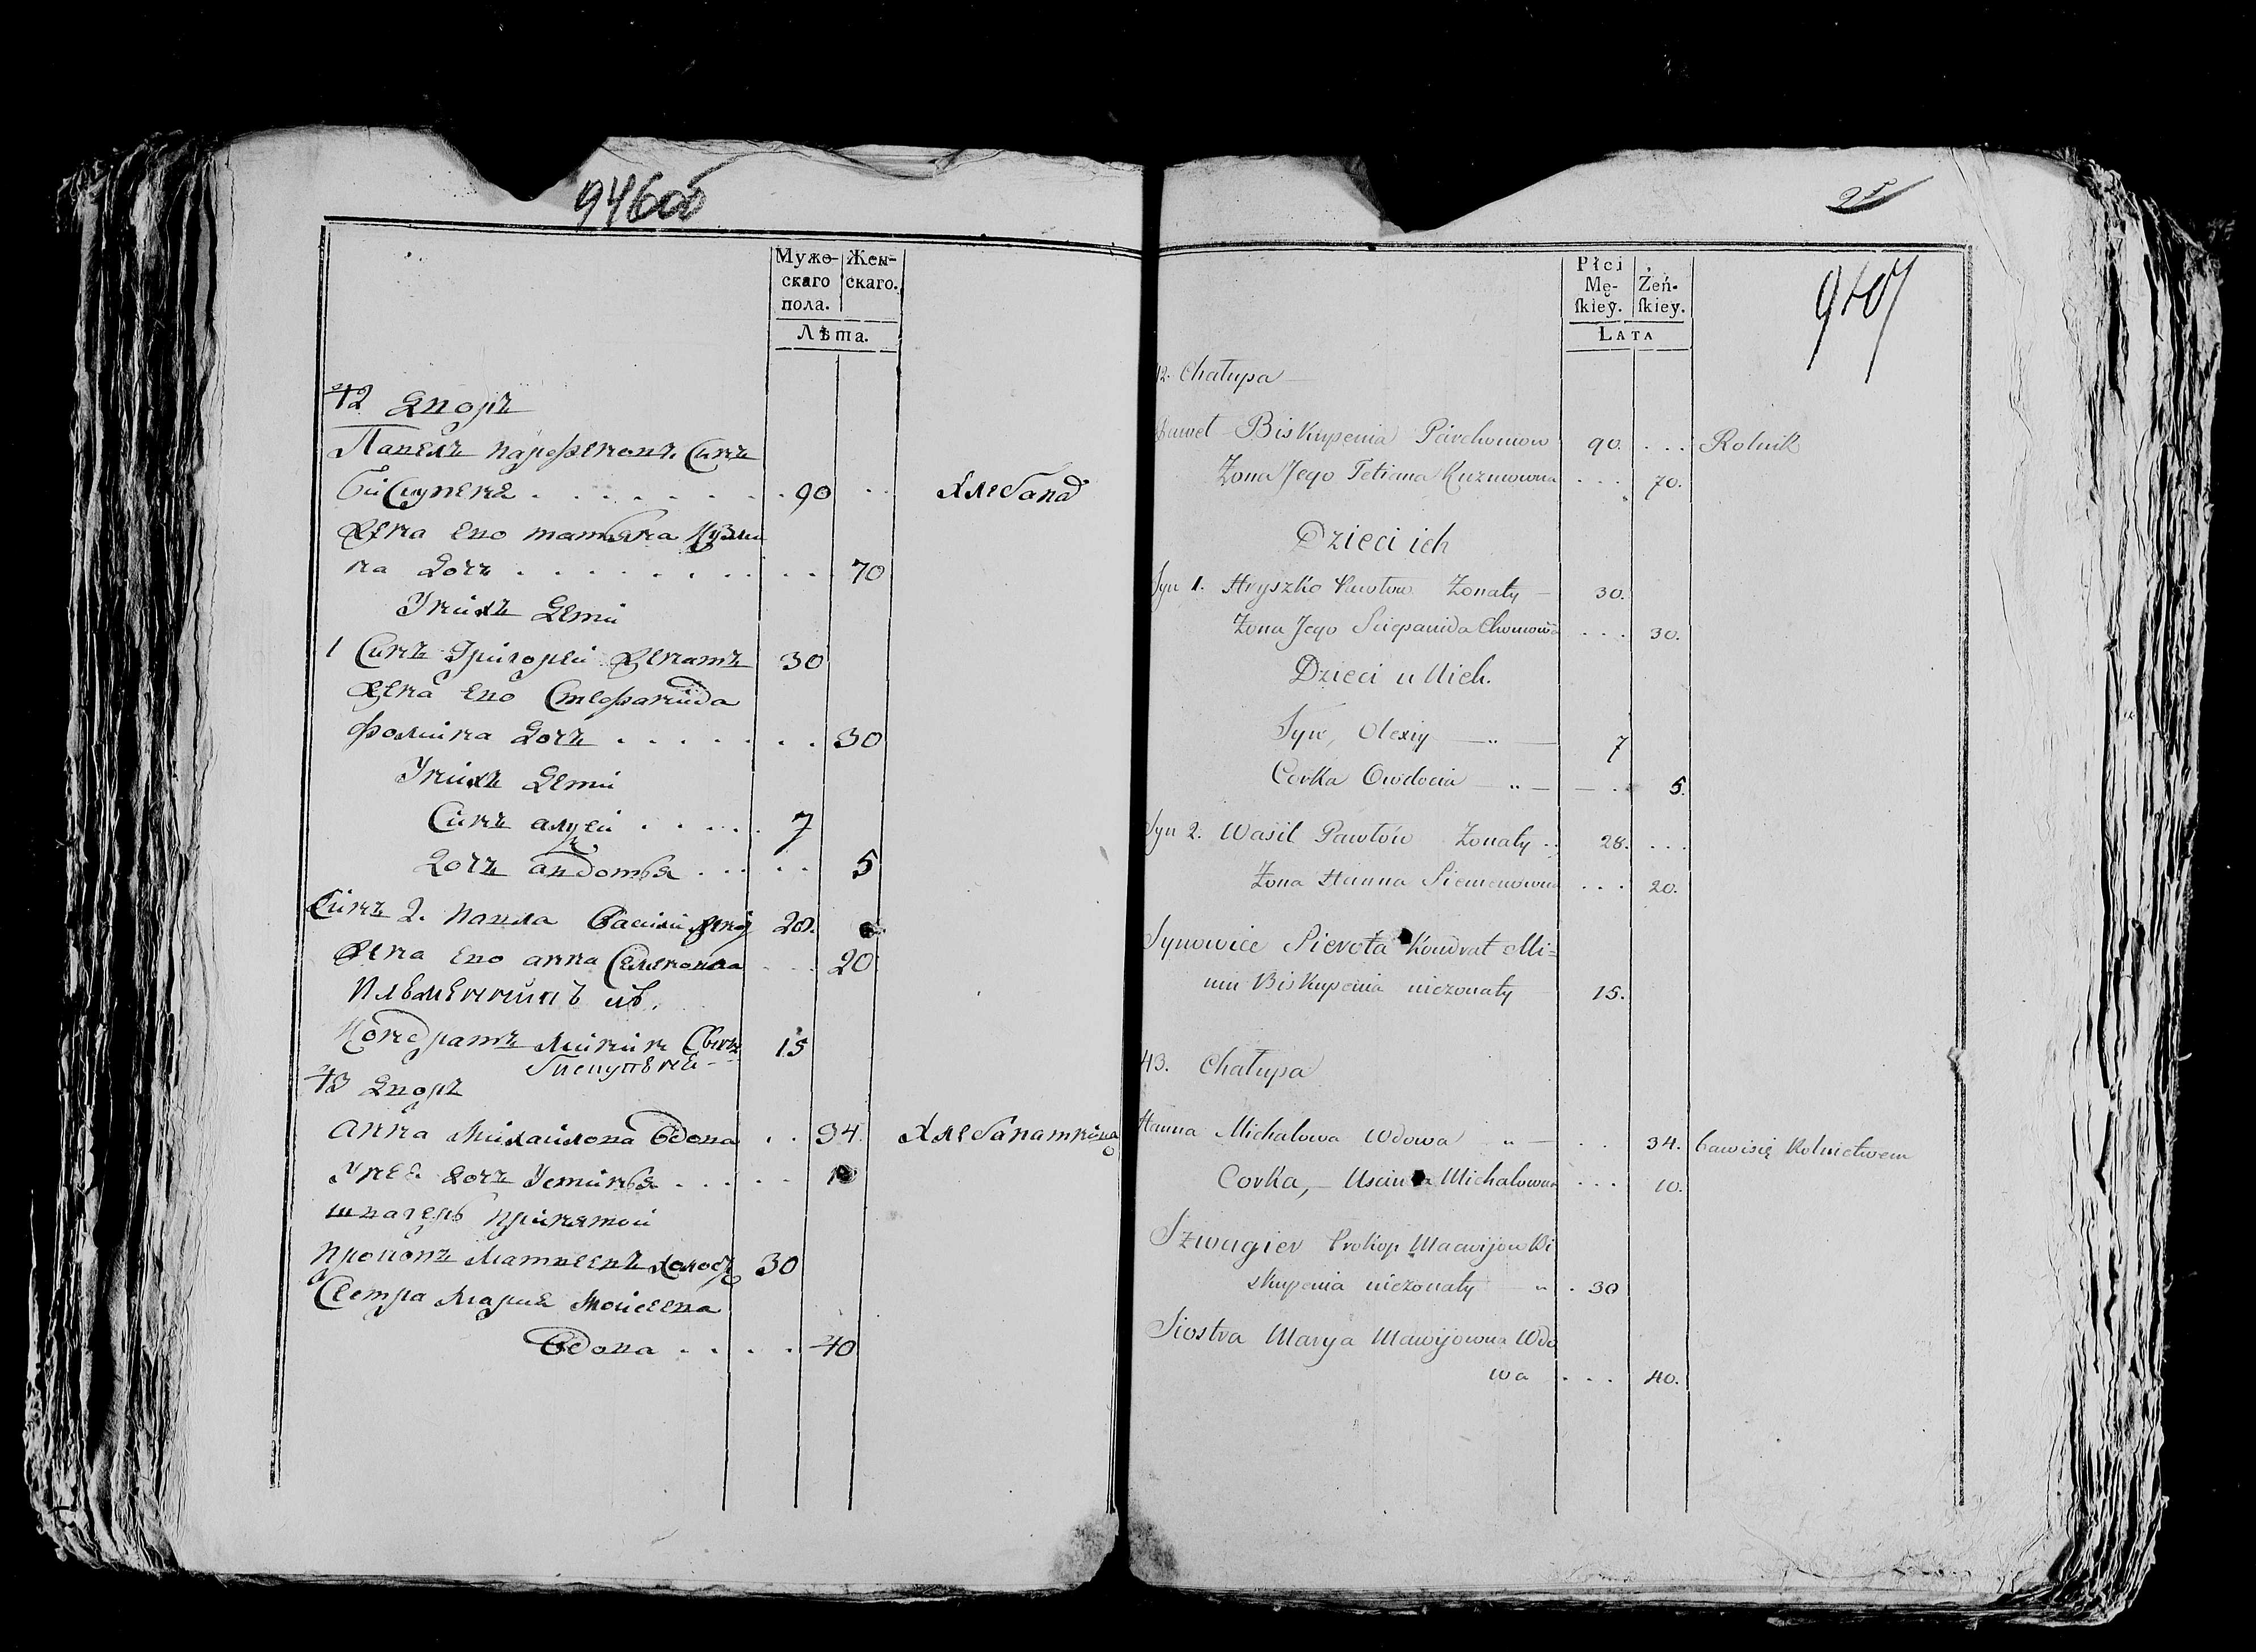 946об
Мужескаго пола. Женскаго.
Лѣта.
42 Дворъ
Павелъ парфеновъ Синъ
Бискупеня . . . . . . . . 90 . . Хлебапа
Жена его татьяна Кузми
на Дочъ . . . . . . . . . . 70
У нихъ Дети
1 Синъ Григорей Женатъ 30
Жена его Стефанида
фомина Дочъ . . . . . . . 30
У нихъ Дети
Синъ алѯей . . . . . 7
Дочъ авдотья . . . . . 5
Синъ 2. павла Василий 28.
Жена его анна Семенова . . . 20
Племенникъ
Кондратъ Минин Синъ 15
43 Дворъ
Анна Михайлова Вдова . . 34. Хлебапатница
У нее Дочъ Устинья . . . . . 10
швагеръ принятой
прокопъ Матвеевъ холостъ 30
Сестра Мария
Вдова . . . . 40
25
947
Płci Męskiey. Żeńskiey.
LATA
42. Chałupa
Paweł Biskupenia Parchomow 90. . . . Rolnik
Żona Jego Tetiana Kuzmowna . . . 70.
Dzieci ich
Syn 1. Hryszko Pawłow Żonaty — 30.
Żona Jego Sciepanida Chomowna . . . 30.
Dzieci u Nich.
Syn, Olexiy — " — 7
Corka Owdocia — " — — . . 5.
Syn 2. Wasil Pawłów Żonaty . . 28. . . .
Żona Hanna Siemenowna . . . 20.
Synowiec Sierota Kondrat Mi=
nin Biskupenia nieżonaty 15.
43. Chałupa
Hanna Michałowa Wdowa " — . . 34. bawi się Rolnictwem
Corka, — Uscinia Michałowna . . . 10.
Szwagier Prokop Maćwijow Bi
skupenia nieżonaty — " . 30
Siostra Marya Mawijowna Wdo
wa . . . 40.